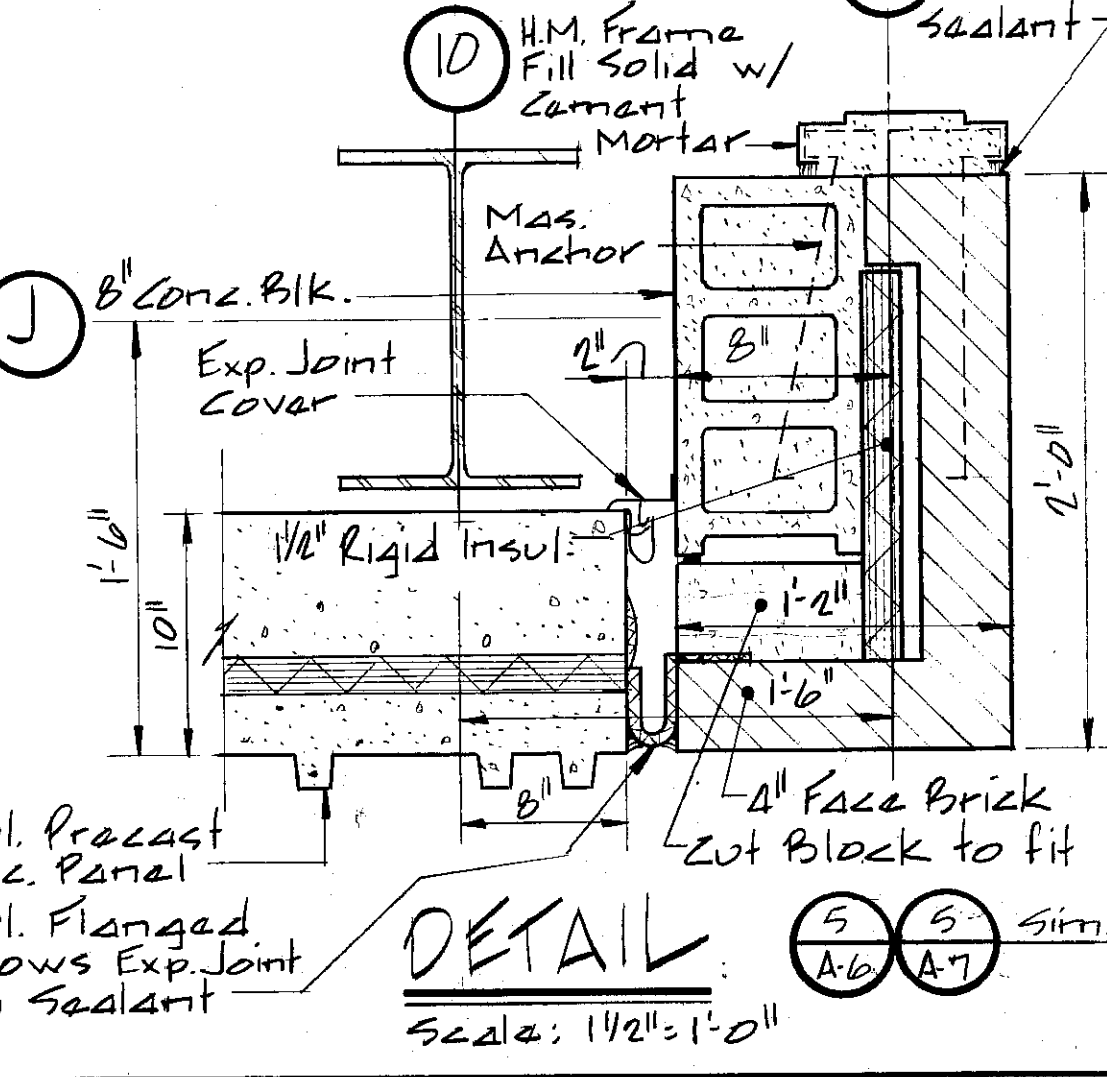 10
H.M. Frame
Fill Solid w/
Cement
Mortar
Sealant
Mas.
Anchor
J
8" Conc. Blk.
Exp. Joint
Cover
2"
8"
2'-0"
1'-6"
10"
1 1/2" Rigid Insul.
1'-2"
1'-6"
8"
4" Face Brick
Cut Block to fit
l. Precast
c. Panel
l. Flanged
ows Exp. Joint
Sealant
DETAIL
Scale: 1 1/2" = 1'-0"
5
A-6
5
A-7
Sim.